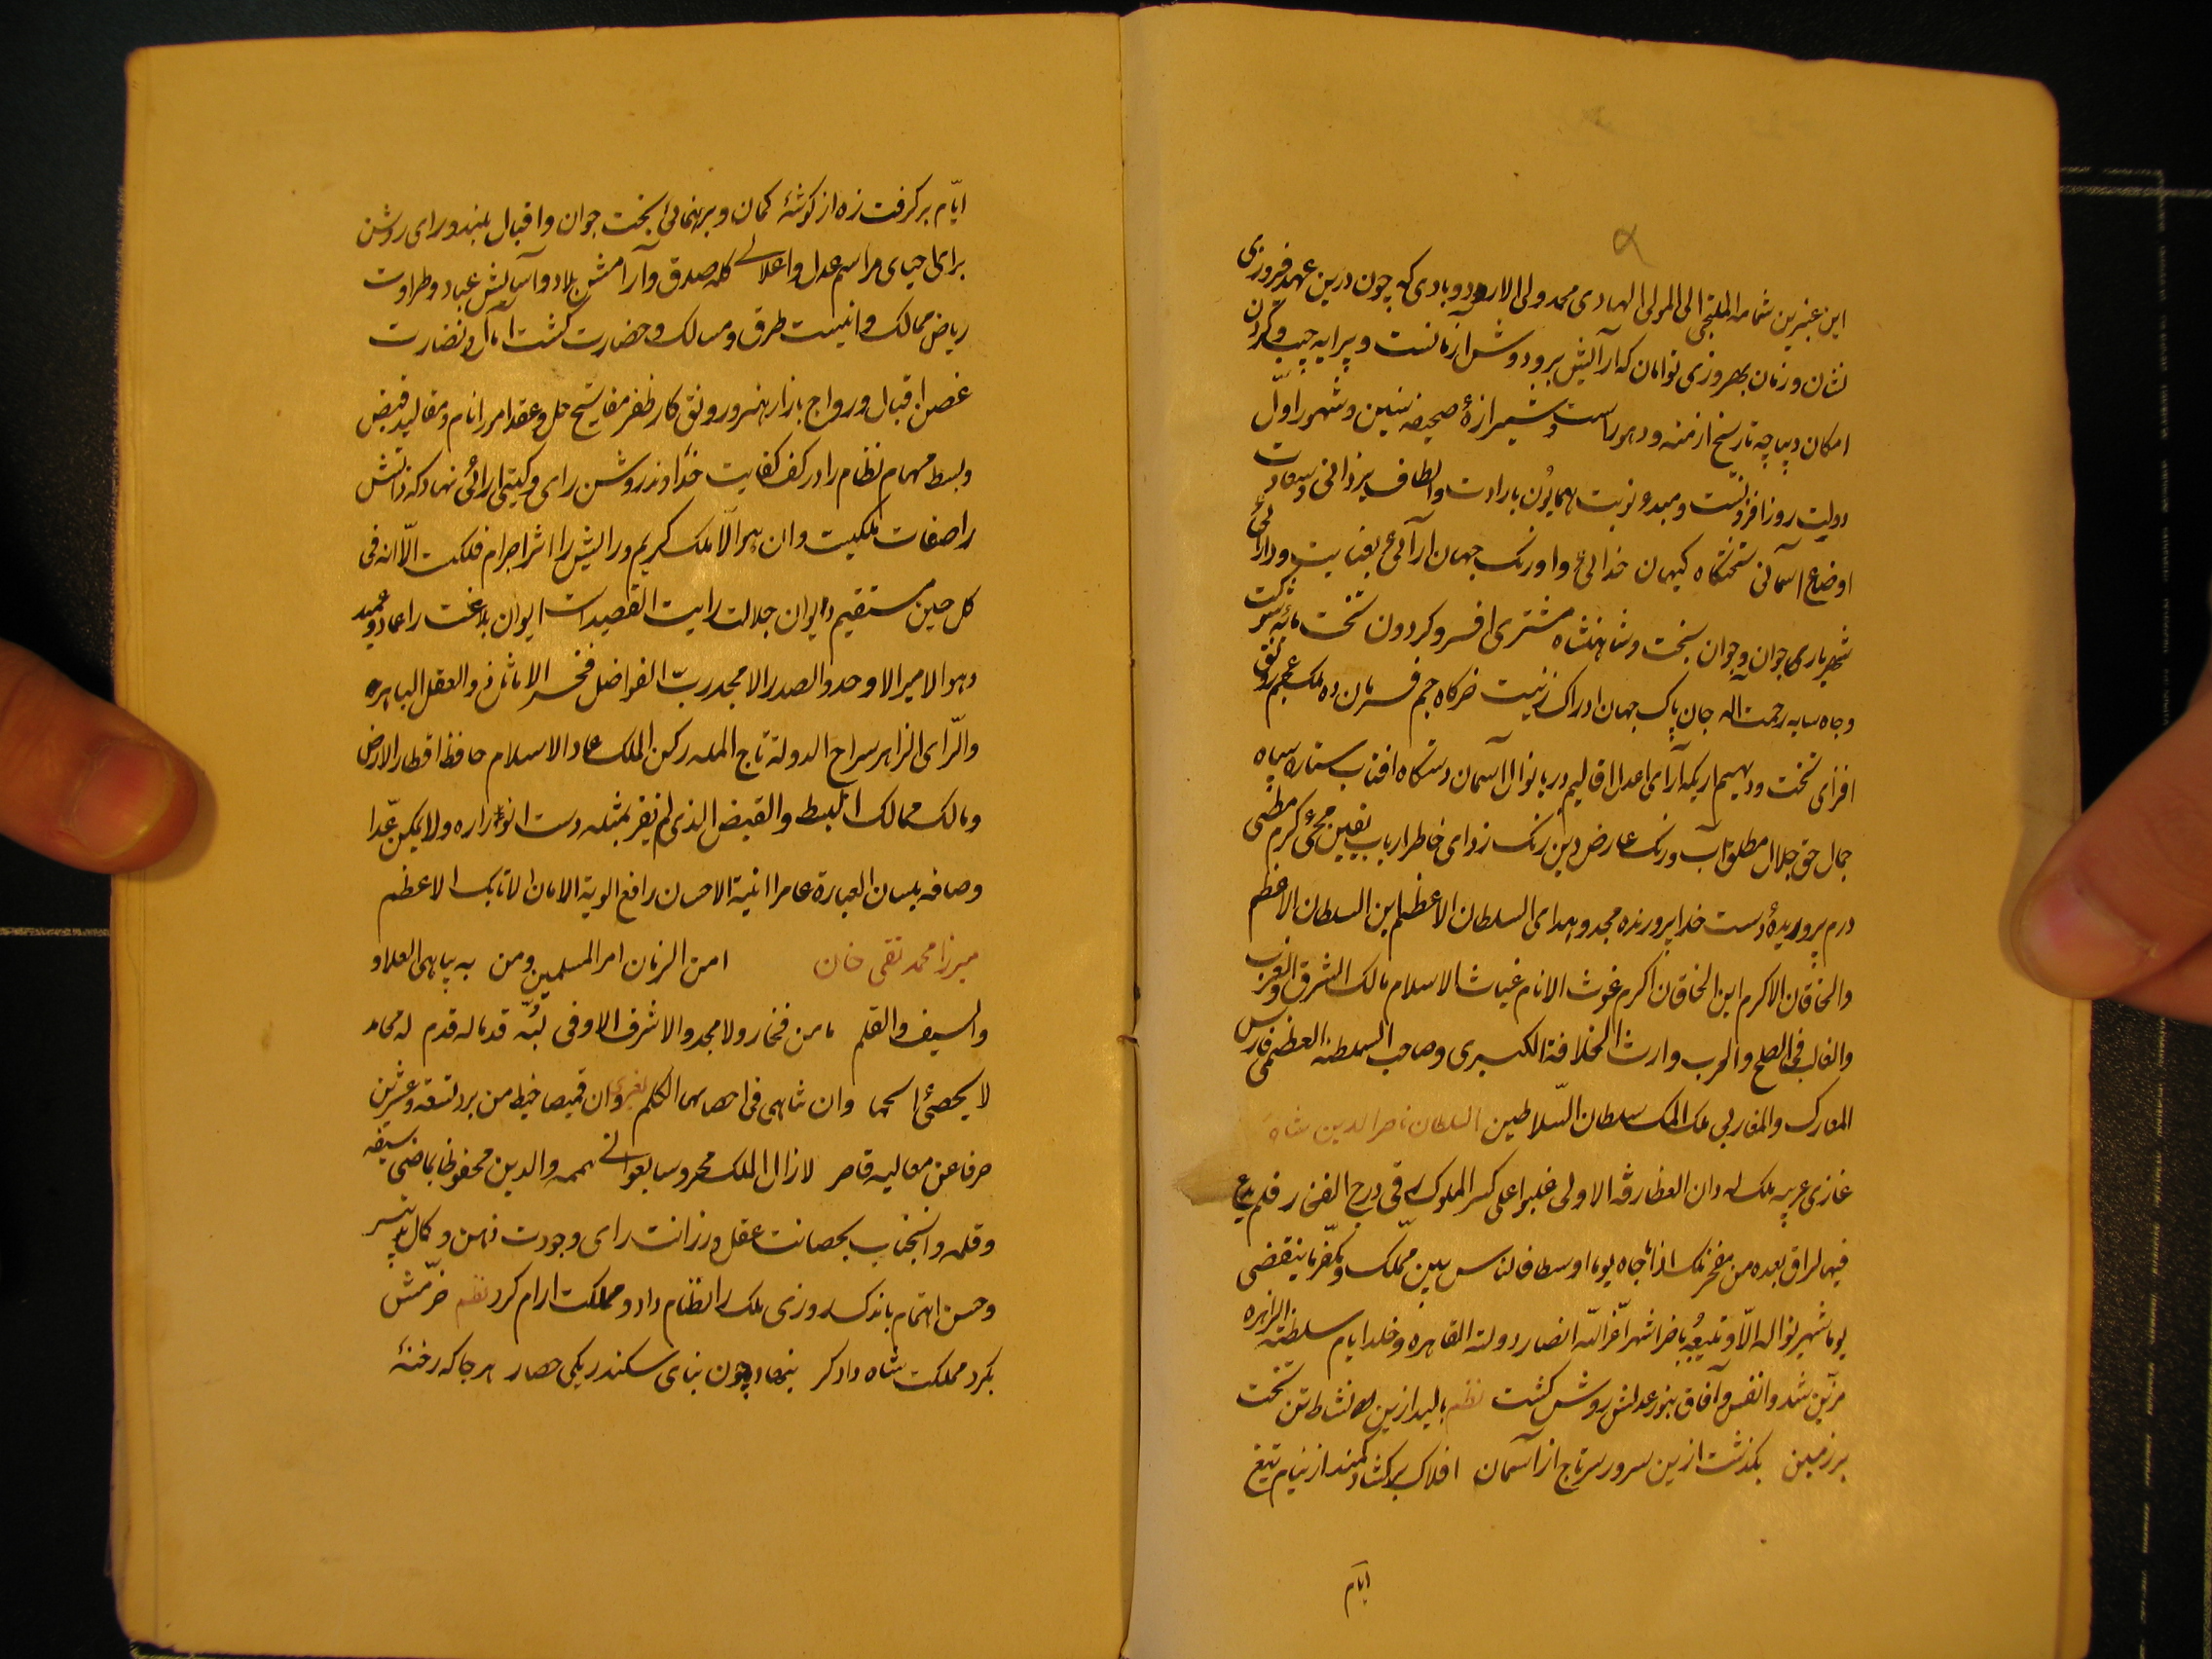 این عنبرین شمامه الملتجی الی المولی الهادی محمد ولی الاردوبادی که چون درین عهد فیروزی
نشان و زمان بهروزی توامان که آرایش بر و دوش ازمانست و پیرایه جیب و گردن
امکان دیباچه تاریخ ازمنه و دهور است و شیرازهٔ صحیفه سنین و شهور اوّل
دولت روز افزونست و مبدء نوبت همایون بارادت و الطاف یزدانی و سعادت
اوضاع آسمانی تختگاه کیهان خدائی و اورنک جهان آرائی بعنایت و دارائی
شهریاری جوان و جوان بخت و شاهنشاه مشتری افسر و کردون تخت مایهٔ شوکت
و جاه سایه رحمت اله جان پاک جهان ادراک زینت خرکاه جم فرمان ده ملک عجم رونق
افزای تخت و دیهیم اریکه آرای اعدل اقالیم دربانوان آسمان دستکاه افتاب ستاره سپاه
جمال حق جلال مطلق آب و رنک عارض دین زنک زدای خاطر ارباب یقین محیی کرم مطفی
درم پروریدهٔ دست خدا پرورنده مجد و هدای السلطان الاعظم ابن السلطان الاعظم
والخاقان الاکرم ابن الخاقان اکرم غوث الانام غیاث الاسلام مالک الشرق والغرب
والغالب فی الصلح والحرب وارث الخلافة الکبری و صاحب السلطنه العظمی فارس
المعارک والمغاربی ملک الملک سلطان السّلاطین السلطان ناصرالدین شاه
غازی عربیه ملک له دان الغطارفه الاولی غلبوا علی کسر الملوک رقی درج الفخار فلم یدع
فیها لراق بعده من مفخر ملک اذا جاه یوما اوسطا فالناس بین مملک و مکفر ما ینقضی
یوما شهیر نواله الّا و تلیه باخر اشهر اعزّ اللّه انصار دولته القاهره و خلد ایام سلطنته الزاهره
مزیّن شد و انفس و آفاق بنور عدلش روشن کشت نظم بالید ازین نشاط تن تخت
بر زمین بکذشت ازین سرور سر تاج از آسمان افلاک برکشاد کمند از نیام تیغ
ایام
ایّام برکرفت زه از کوشهٔ کمان و برهنمائی بخت جوان و اقبال بلند و رای روشن
برای احیای مراسم عدل و اعلای کلمه صدق و آرامش بلاد و آسایش عباد و طراوت
ریاض ممالک و انیست طرق و مسالک و حضارت کشت آمال و نضارت
غصن اقبال و رواج بازار هنر و رونق کار ظفر مفاتیح حل و عقد امر انام و مقالید قبض
و بسط مهام نظام را در کف کفایت خداوند روشن رای و کیتی ارائی نهاد که ذاتش
را صفات ملکیت و ان هو الّا ملک کریم و رایش را اثر اجرام فلکیت الّا انه فی
کل حین مستقیم دیوان جلالت را بیت القصید است ایوان بلاغت را عماد و عمید
و هو الامیر الاوحد والصدر الامجد ربّ الفواضل فخر الاماثل ذو العقل الباهره
والرّای الزاهر سراج الدولة تاج المله رکن الملک عماد الاسلام حافظ اقطار الارض
و مالک ممالک البسط والقبض الذی لم یفز بمثله دست انوزاره ولا یمکن عدّ
وصافه بلسان العبارة عامر ابنیة الاحسان رافع الویة الامان الاتابک الاعظم
میرزا محمد تقی خان امن الزمان امر المسلمین و من به یباهی العلا و
والسیف والقلم ما من فخار ولا مجد والاشرف الا وفی لبّه قدماله قدم له محامد
لا یحصی اسمها وان تناهی فی احصاها الکلم لغیره وان قمیصا خیط من برد تسعة و عشرین
حرفا عن معالیه قاصر لا زال الملک محروسا بعوالی هممه والدین محفوظا بماضی سیفه
و قلمه و انجناب بحصانت عقل و رزانت رای و جودت ذهن و کمال تدبیر
و حسن اهتمام باندک روزی ملک را انتظام داد و مملکت ارام کرد نظم خرّمش
بکرد مملکت شاه دادکر بنهاد چون بنای سکندر یکی حصار هر جا که رخنهٔ